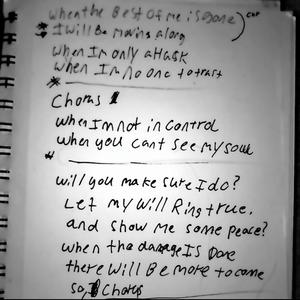 when the Best of me is gone) cap
* I will Be moving along
when Im only a Husk
when Im no one to trust
*
Chorus 1
when Im not in control
when you cant see my soul
*
will you make sure I do?
Let my will Ring true.
and show me some peace?
when the damage IS Done
there will Be more to come
so, Chorus